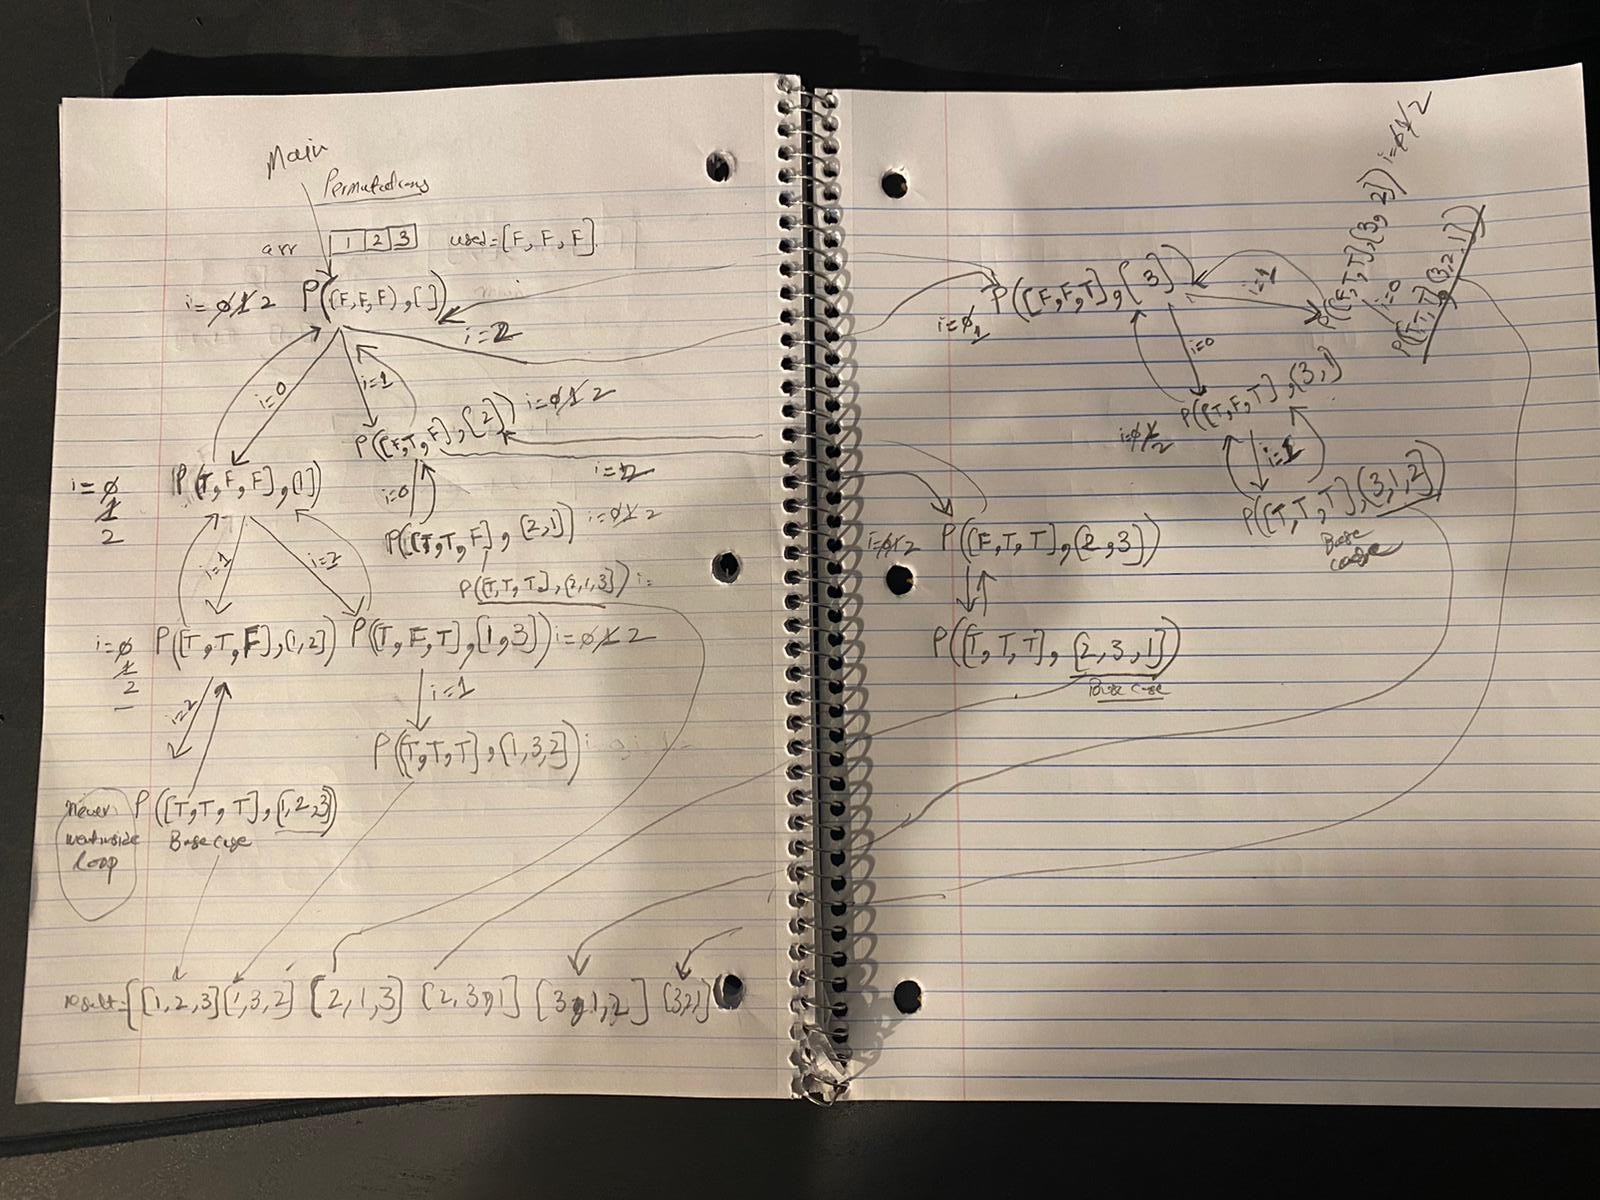 Main
Permutations
arr 1 2 3 used=[F, F, F].
i=0 1 2 P([F,F,F),[ ])
i=2
i=0
i=1
P([F,T,F],[2]) i=0 1 2
i=2
P([T,F,F],[1])
i=0
1
2
i=0
P([T,T,F],[2,1]) i=0 1 2
P([T,T,T],[2,1,3]) i=
i=1
i=2
i=0
1
2
P([T,T,F],[1,2])
P([T,F,T],[1,3]) i=0 1 2
i=2
i=1
P([T,T,T],[1,3,2])
Never
went inside
loop
P([T,T,T],[1,2,3])
Base case
result=[[1,2,3][1,3,2] [2,1,3] [2,3,1] [3,1,2] [3,2,1]
P([F,F,T],[3])
i=0 1
i=1
P([F,T,T],[3,2]) i=0 1 2
i=0
P([T,T,T],[3,2,1])
i=0
P([T,F,T],[3,1)
i=0 1 2
i=1
P([T,T,T],[3,1,2])
Base
case
i=0 1 2 P([F,T,T],[2,3])
P([T,T,T],[2,3,1])
Base case